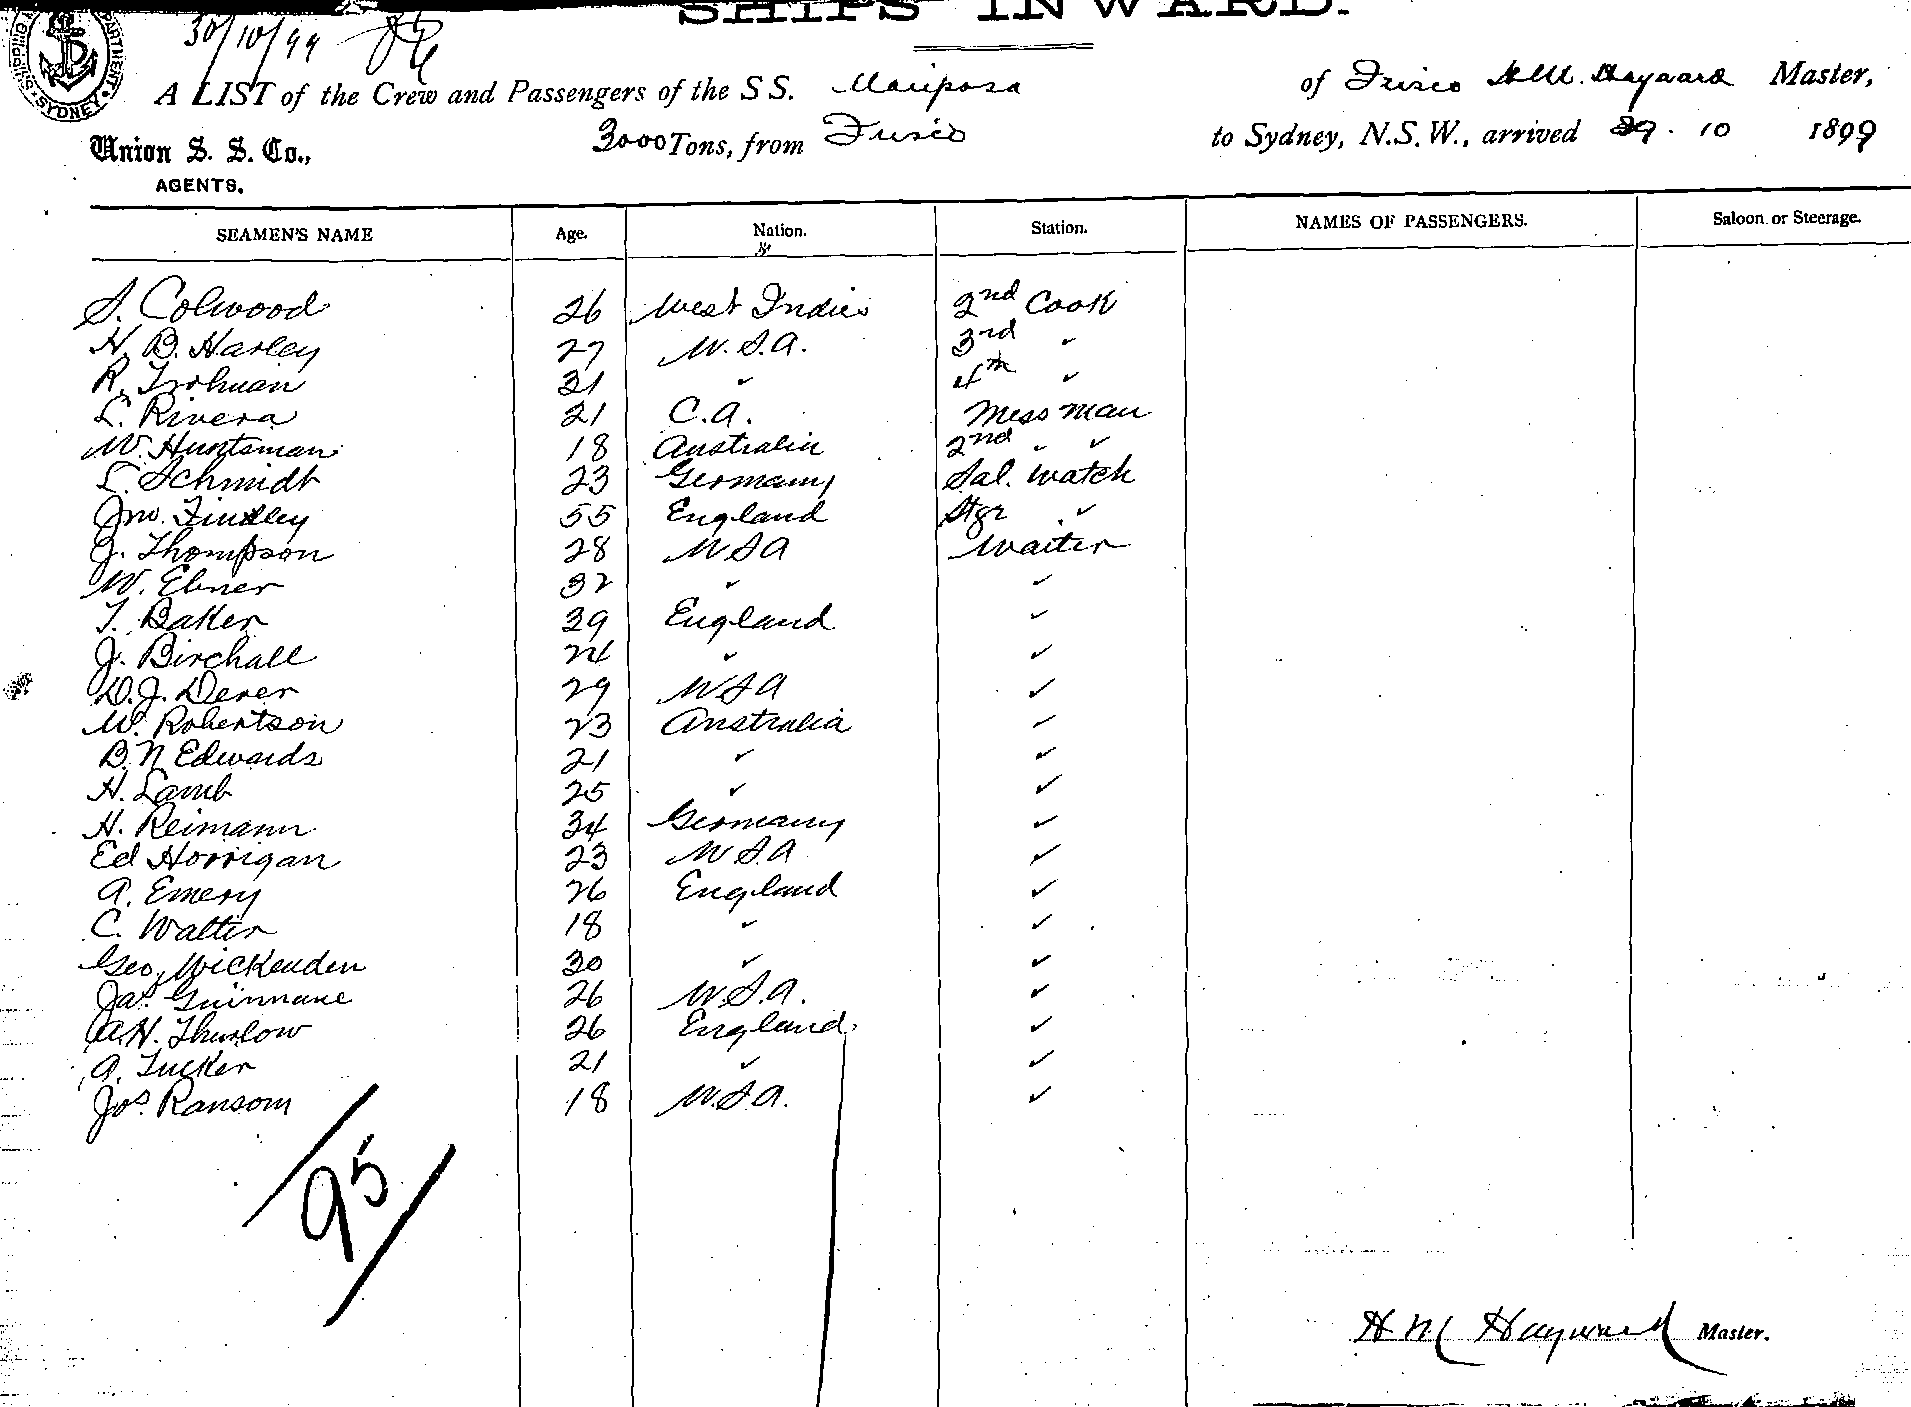 SHIPS INWARD.
30/10/99
A LIST of the Crew and Passengers of the S S. Mariposa of Frisco H. M. Hayward Master,
Union S. S. Co., 3000 Tons, from Frisco to Sydney, N.S.W., arrived 29 . 10 1899
AGENTS.
SEAMEN'S NAME Age. Nation. Station. NAMES OF PASSENGERS. Saloon or Steerage.
S. Colwood 26 West Indies 2nd Cook
H. B. Harley 27 U.S.A. 3rd "
R. Trohman 31 " 4th "
L. Rivera 21 C.A. Mess man
W. Huntsman 18 Australia 2nd " "
L. Schmidt 23 Germany Sal. Watch
Jno. Findley 55 England Stgr "
J. Thompson 28 USA Waiter
W. Ebner 32 " "
T. Baker 39 England "
J. Birchall 24 " "
D. J. Derer 29 USA "
W. Robertson 23 Australia "
B. N Edwards 21 " "
H. Lamb 25 " "
H. Reimann 34 Germany "
Ed Horrigan 23 U S.A "
A. Emery 26 England "
C. Walter 18 " "
Geo. Wickenden 30 " "
Jas. Guinnane 26 U.S.A. "
A. H. Thurlow 26 England "
A. Tucker 21 " "
Jos. Ransom 18 U.S.A. "
95
H M Hayward Master.